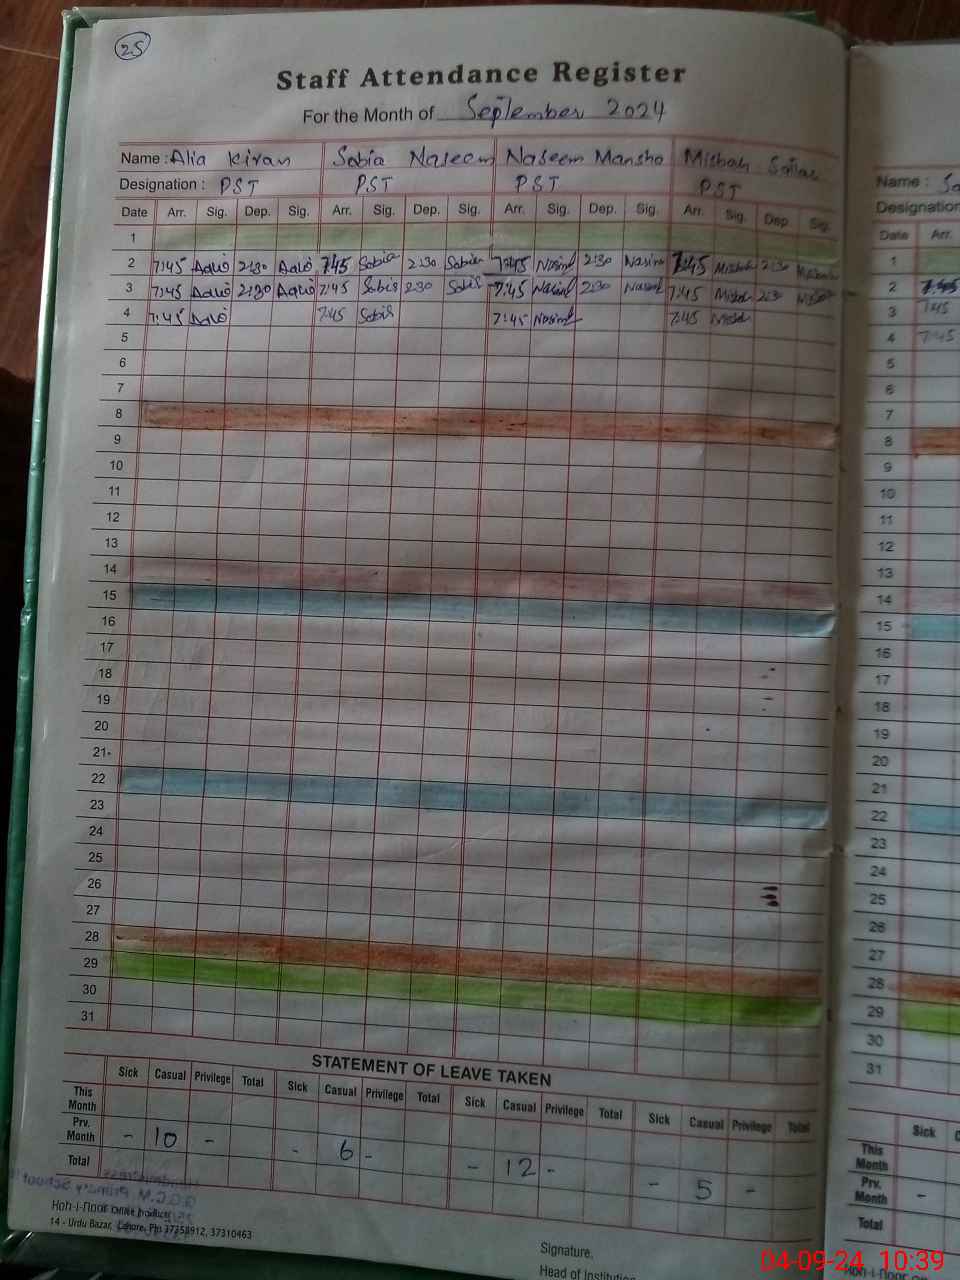 25
Staff Attendance Register
For the Month of September 2024
Name : Alia Kiran Sobia Naseem Naseem Mansho Misbah
Designation : PST PST PST PST
Date Arr. Sig. Dep. Sig. Arr. Sig. Dep. Sig. Arr. Sig. Dep. Sig. Arr. Sig. Dep Sig.
1
2 7:45 2:30 7:45 Sobia 2:30 Sobia 7:45 Nasim 2:30 Nasim 7:45 Misbah 2:30
3 7:45 2:30 7:45 Sobia 2:30 Sobia 7:45 Nasim 2:30 Nasim 7:45 Misbah 2:30
4 7:45 7:45 Sobia 7:45 Nasim 7:45 Misbah
5
6
7
8
9
10
11
12
13
14
15
16
17
18
19
20
21
22
23
24
25
26
27
28
29
30
31
STATEMENT OF LEAVE TAKEN
Sick Casual Privilege Total Sick Casual Privilege Total Sick Casual Privilege Total Sick Casual Privilege Total
This Month
Prv. Month - 10 - - 6 - - 12 - - 5 -
Total
14 - Urdu Bazar, Lahore, Ph: 37358912, 37310463
Signature,
Head of Institution
Name :
Designation
Date Arr.
1
2
3 7:45
4 7:45
5
6
7
8
9
10
11
12
13
14
15
16
17
18
19
20
21
22
23
24
25
26
27
28
29
30
31
Sick
This Month
Prv. Month -
Total
04-09-24 10:39